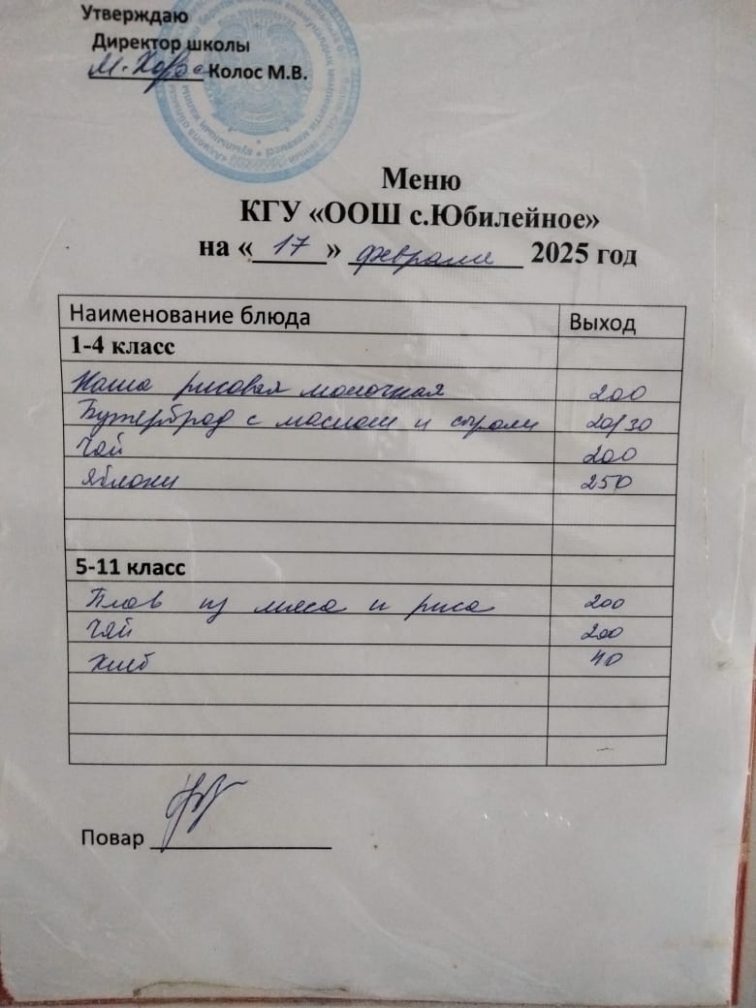 Утверждаю
Директор школы
Колос М.В.
Меню
КГУ «ООШ с.Юбилейное»
на «17» февраля 2025 год
Наименование блюда Выход
1-4 класс
Каша рисовая молочная 200
Бутерброд с маслом и сыром 20/30
Чай 200
Яблоки 250
5-11 класс
Плов из мяса и риса 200
Чай 200
Хлеб 40
Повар